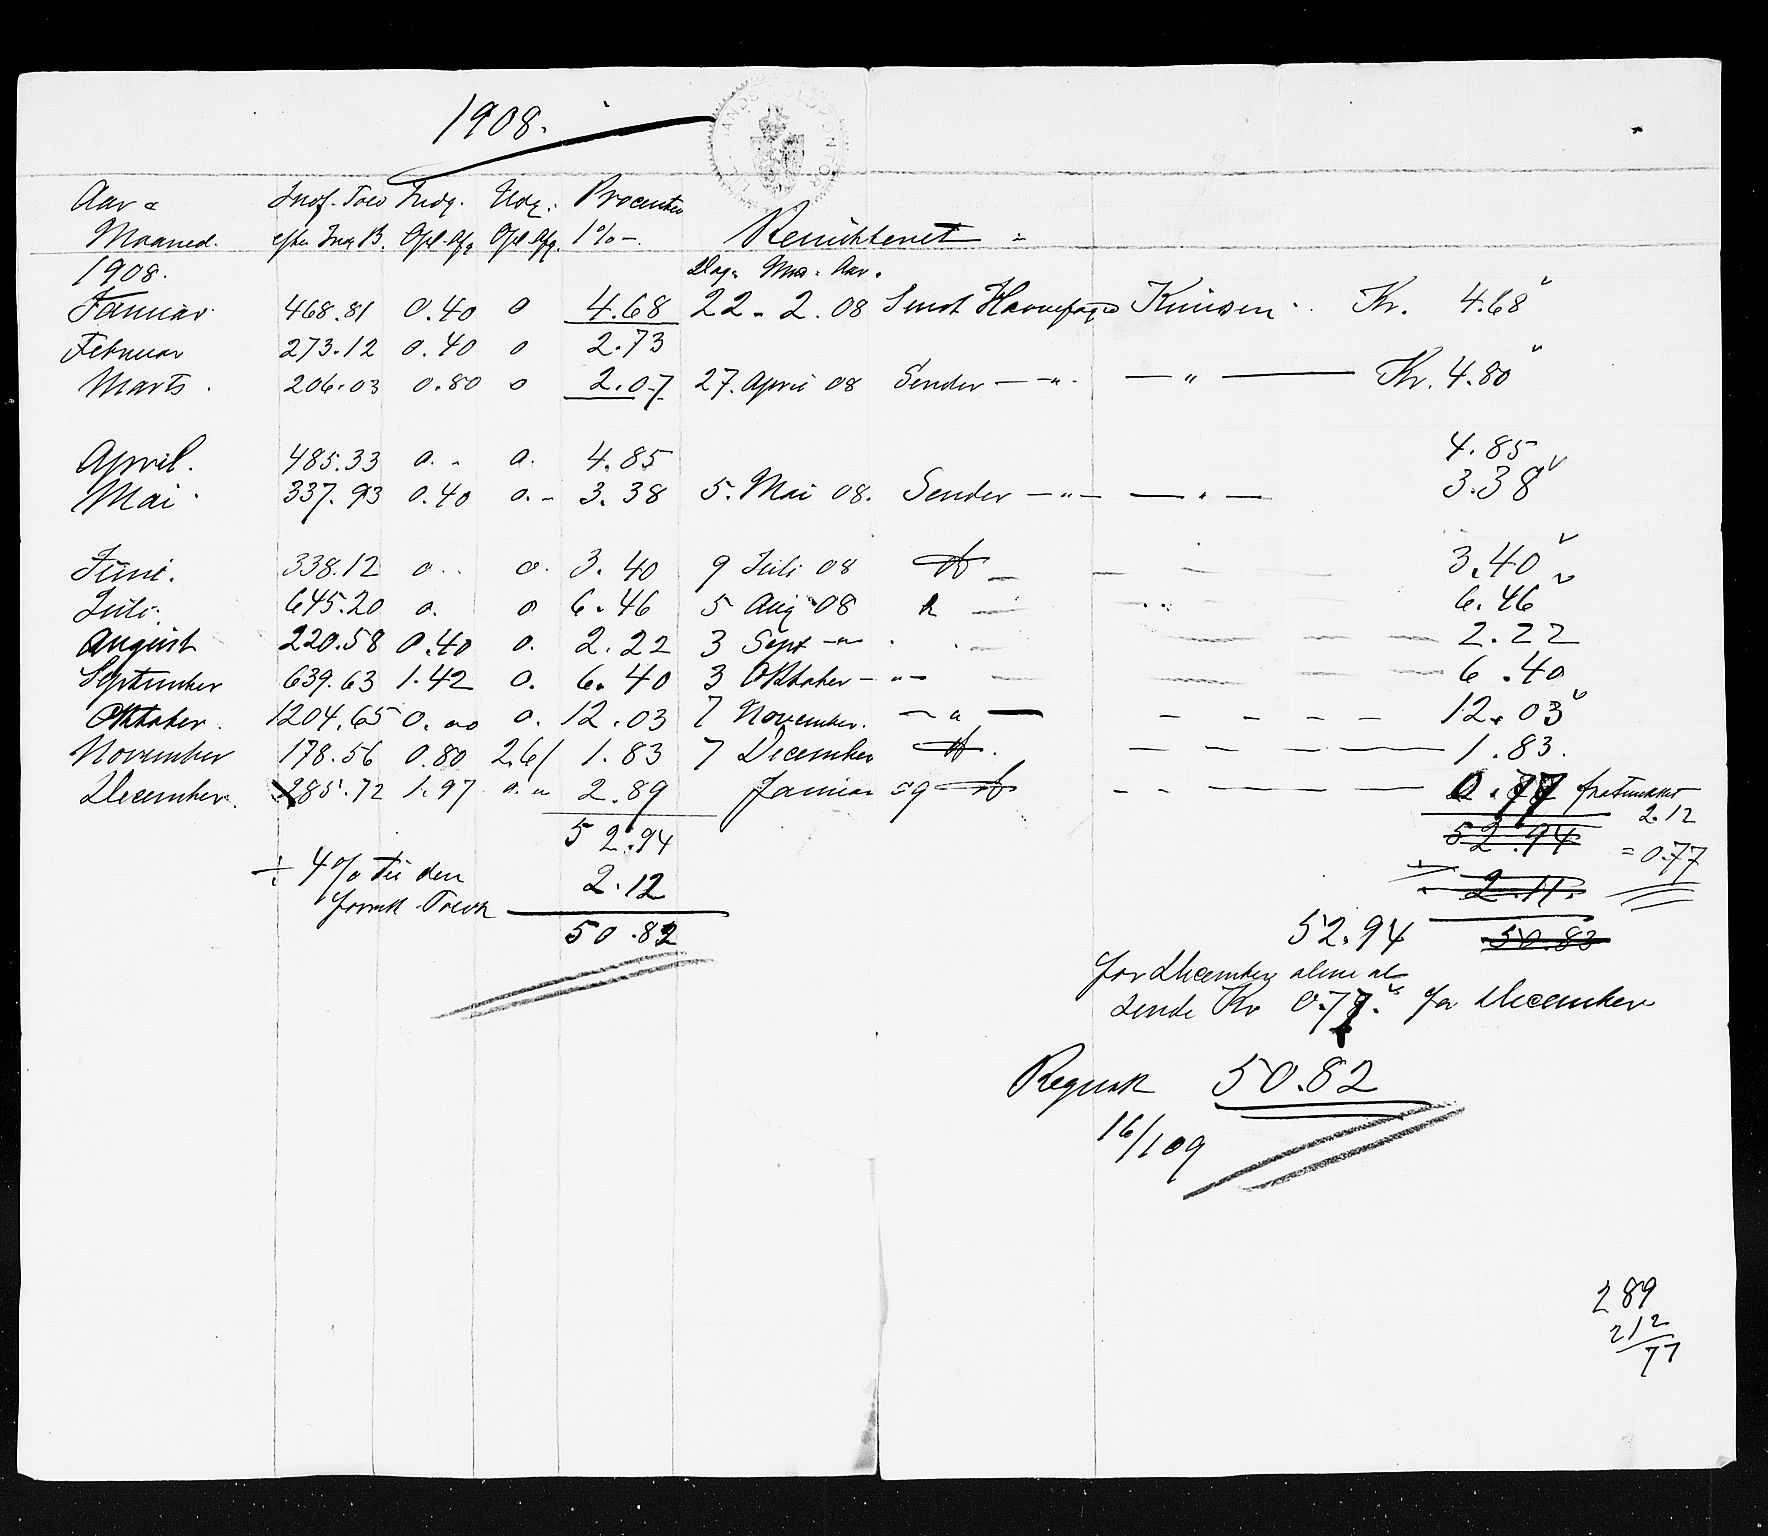 1908.
Aar & Indf. Told Indg. Udg. Procenter
Maaned. efter Ing B. Opl. Afg. Opl. Afg. 1% - Remitteret
1908. Dag. Mna. Aar.
Januar 468.81 0.40 0 4.68 22 - 2. 08 Sendt Havnefoged Knudsen Kr. 4.68
Februar 273.12 0.40 0 2.73
Marts 206.03 0.80 0 2.07 27. April 08 Sender — " — — " — Kr. 4.80
April. 485.33 0. - 0. 4.85 4.85
Mai 337.93 0.40 0. - 3.38 5. Mai 08. Sender — " — — " — 3.38
Juni. 338.12 0 0. 3.40 9 Juli 08 3.40
Juli. 645.20 0. 0 6.46 5 Aug 08 6.46
August 220.58 0.40 0. 2.22 3 Sept — " — 2.22
September 639.63 1.42 0. 6.40 3 Oktober — " — 6.40
Oktober. 1204.65 0.00 0. 12.03 7 November. — " — 12.03
November 178.56 0.80 2.61 1.83 7 December 1.83.
December. 285.72 1.97 2.89 Januar 09 0.77
2.12
52.94 52.94
= 0.77
÷ 4% til den 2.12 2.11.
50.82 52.94 50.83
for December alene at
sende Kr 0.77. for December
50.82
16/1 09
289
212
77